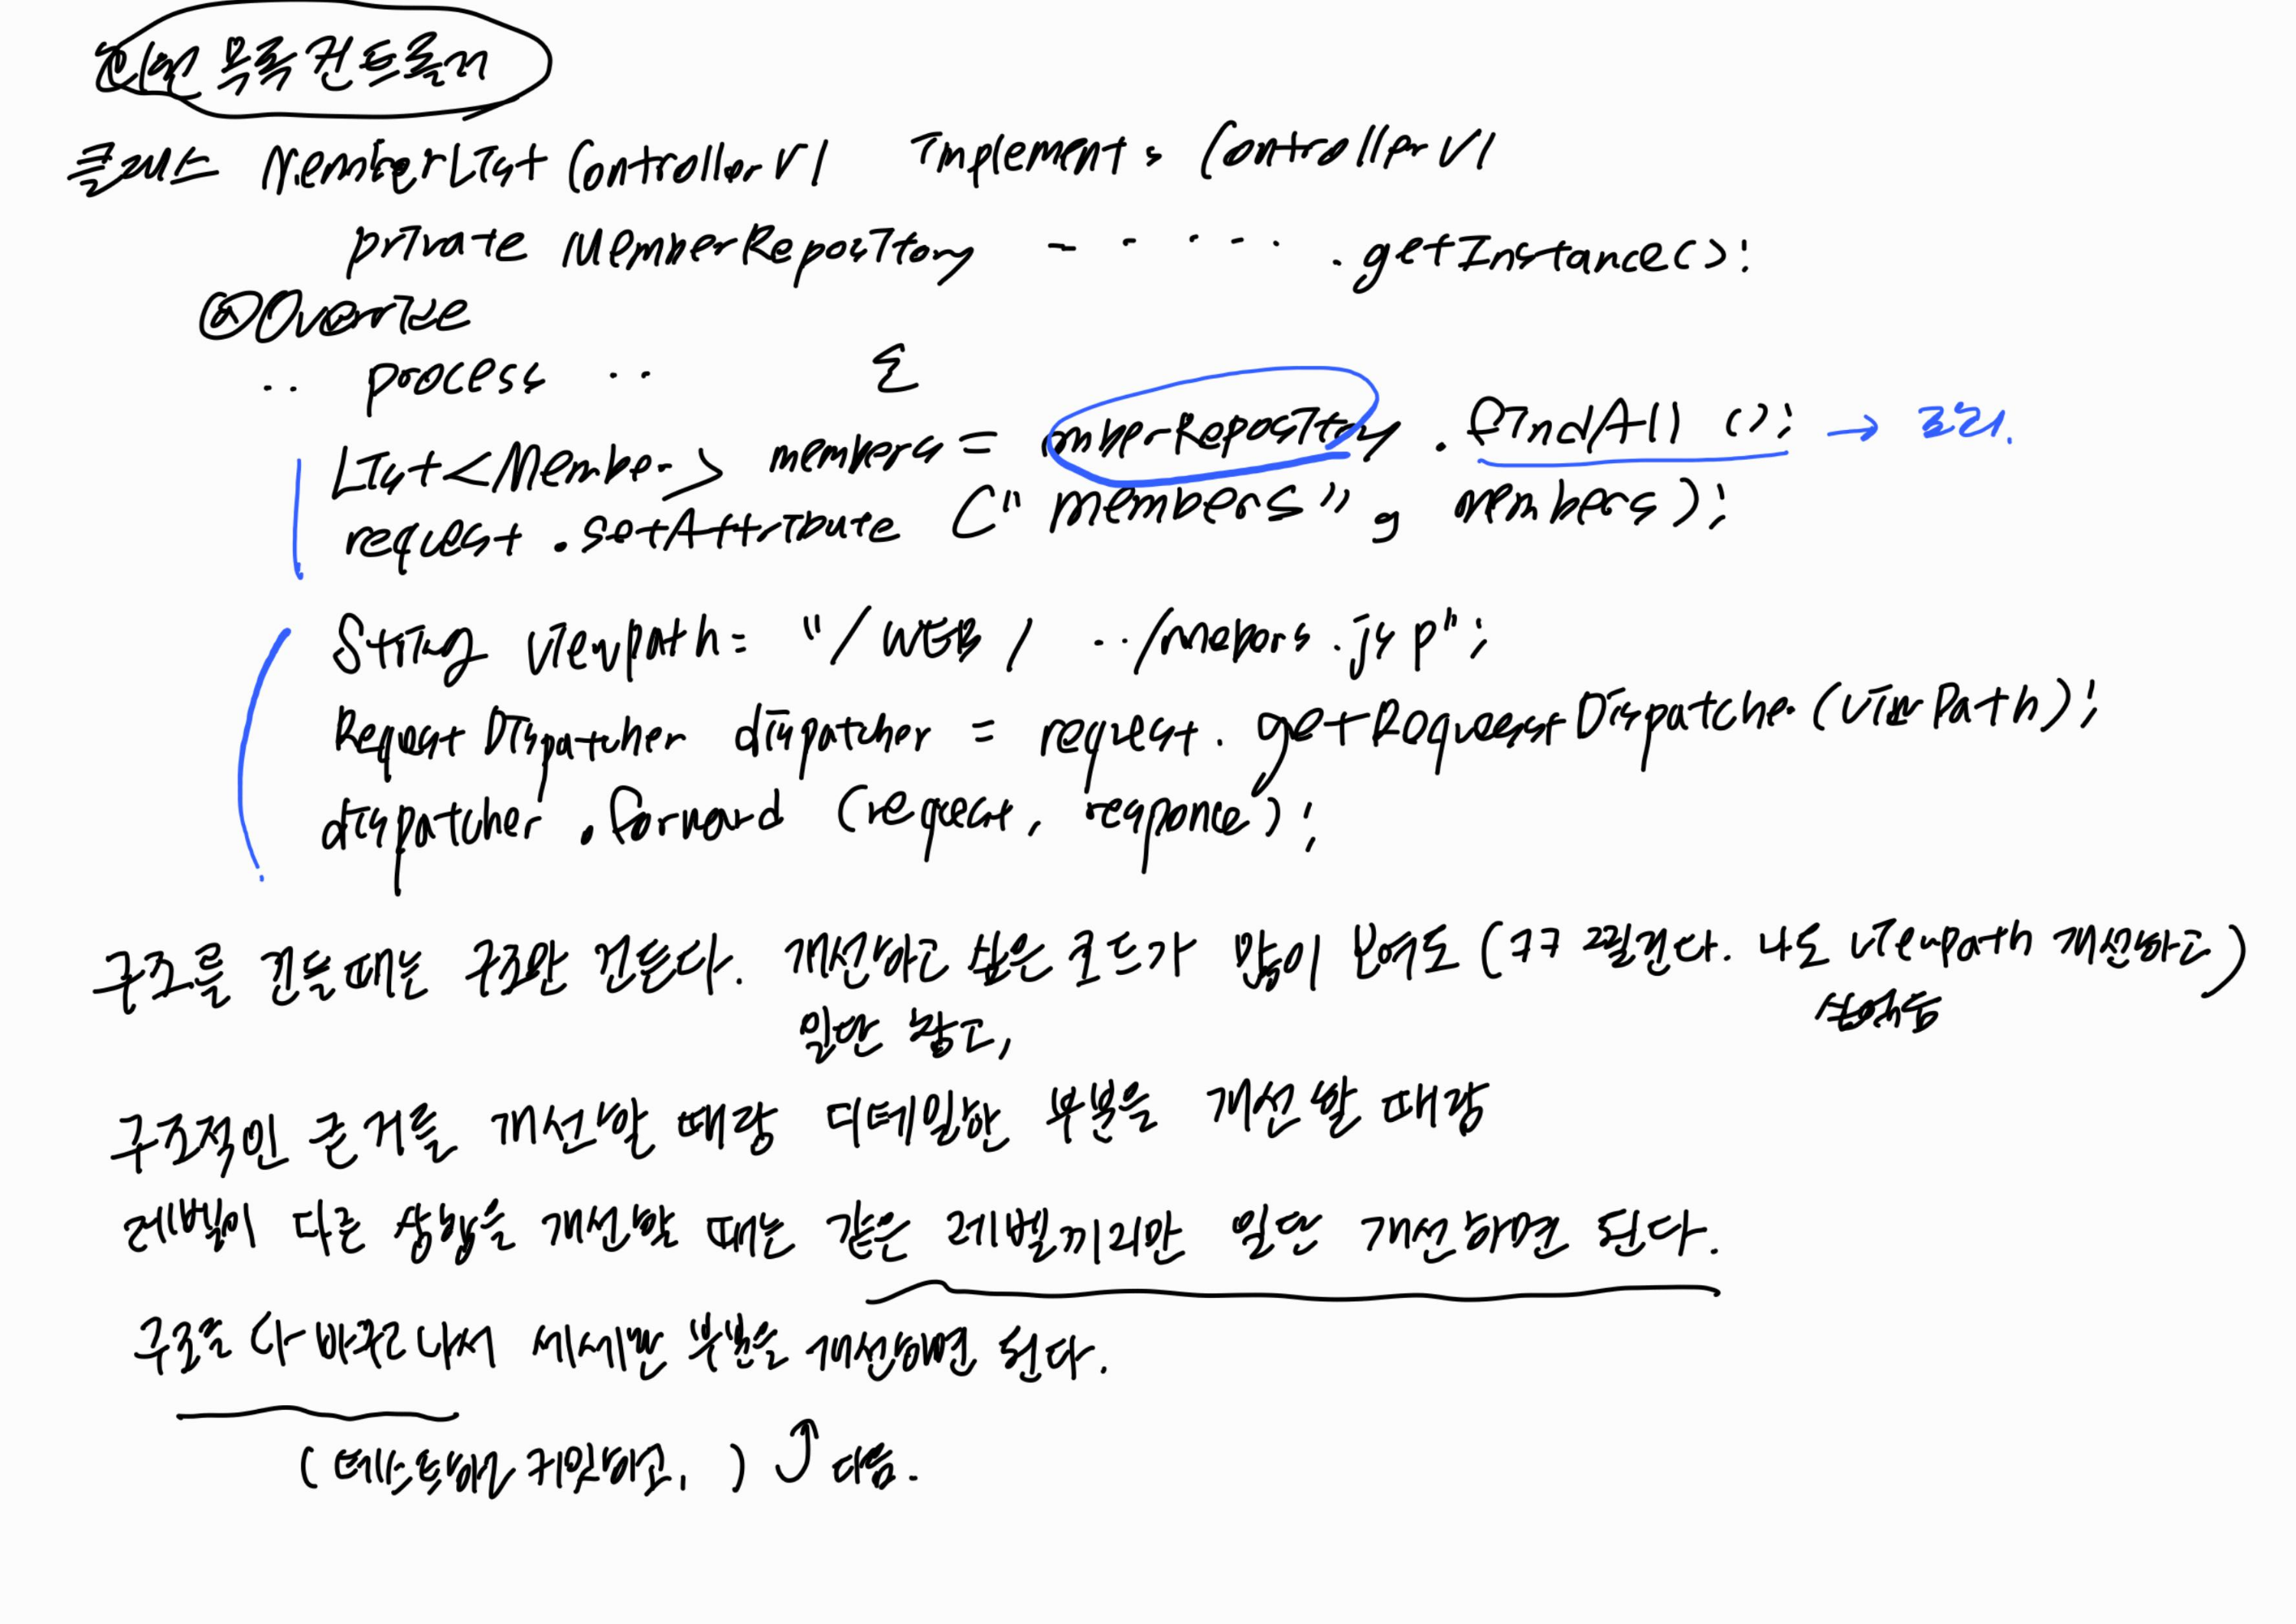 회원 목록 컨트롤러
클래스 MemberListControllerV1 implements ControllerV1
private MemberRepository - - · · - - · .getInstance();
@Override
.. process .. {
List<Member> members = mberRepository .findAll (); → 조회.
request.setAttribute ("members", members);
String viewpath= "/WEB/ ../mebors.jsp";
RequestDispatcher dispatcher = request.getRequestDispatcher(viewPath);
dispatcher.forward (request, responce);
구조를 건들때는 구조만 건든다. 개선하고 싶은 코드가 많이 보여도 (ㅋㅋ 찔린다. 나도 viewpath 개선하고
싶었음)
일단 참고,
구조적인 큰 거를 개선할 때랑 디테일한 부분을 개선할 때랑
레벨이 다른 상황을 개선할 때는 같은 레벨끼리만 일단 개선하면 된다.
구조를 다 바꾸고나서 세세한 부분을 개선하면 된다.
(테스트하고 커밋하고.) 다음.